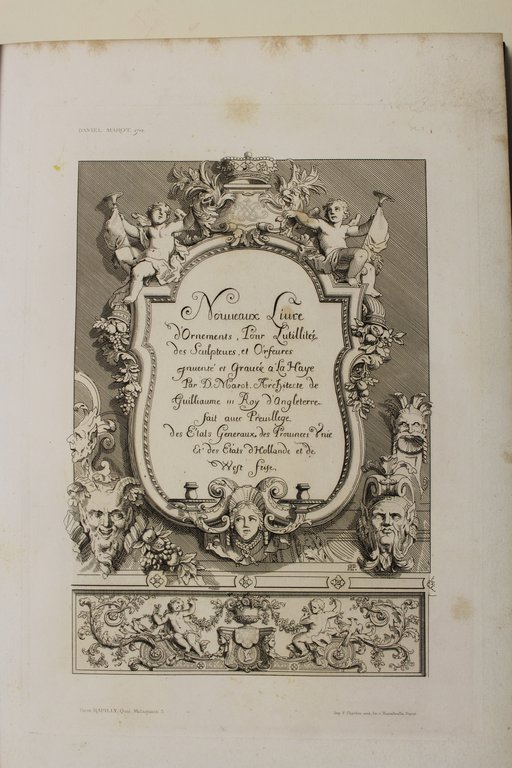 DANIEL MAROT, 1712
Nouueaux Liure
d'Ornements, Pour Lutillitéz
des Sculpteurs, et Orfeures
jnuenté et Grauéé a La Haye
Par D. Marot. Architecte de
Guilliaume III Roy d'Angleterre
fait auec Preuillege
des Etats Generaux des Prouinces Vnie
Et des Etats d'Hollande et de
West frise.
RAPILLY, Quai Malaquais 5.
Imp.